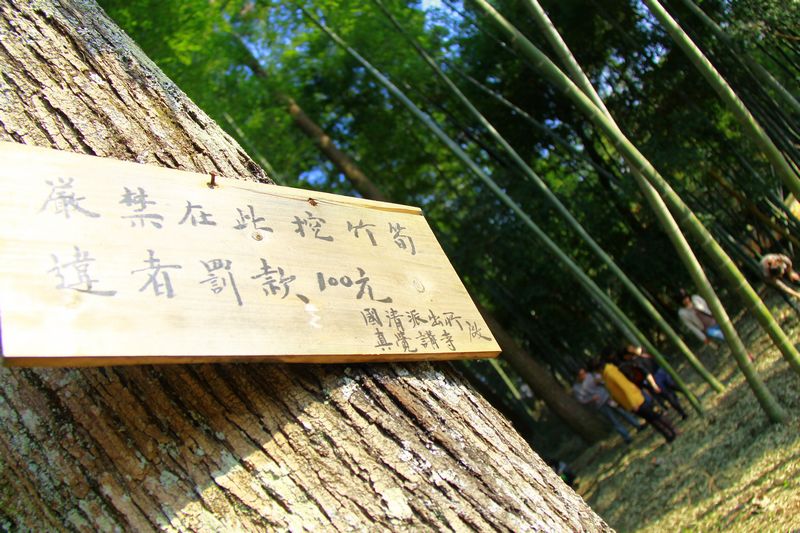 严禁在此挖竹笋
違者罰款、100元
國清派出所
真覺講寺 设